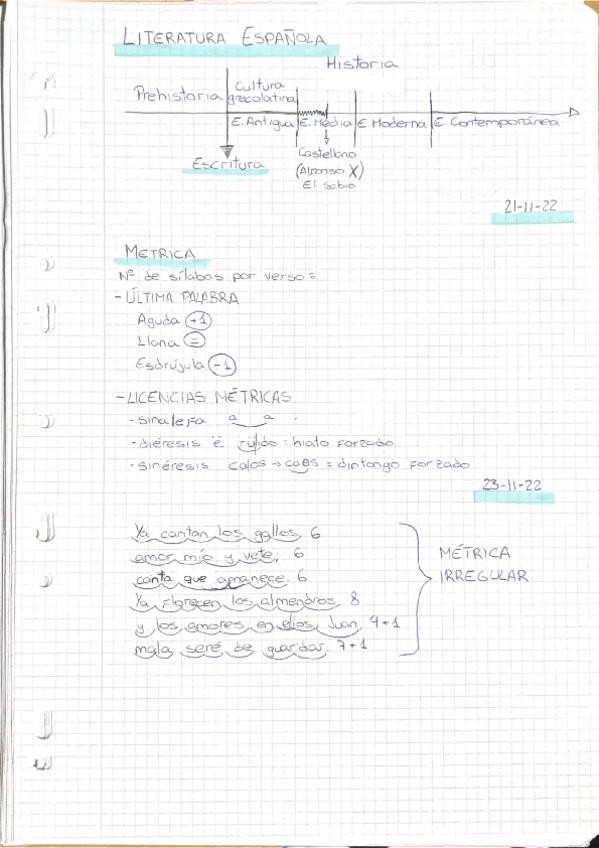 LITERATURA ESPAÑOLA
Historia
Prehistoria
Cultura
grecolatina
E. Antigua
E. Media
E Moderna
E Contemporánea
Escritura
Castellano
(Alfonso X)
El Sabio
21-11-22
METRICA
Nº de sílabas por verso:
- ÚLTIMA PALABRA
Aguda +1
Llana =
Esdrújula -1
- LICENCIAS MÉTRICAS
- sinalefa a a
- diéresis ë ruido: hiato forzado
- sinéresis caos → caos = diptongo forzado
23-11-22
Ya cantan los gallos, 6
amor mío y vete, 6
canta que amanece. 6
Ya florecen los almendros 8
y los amores en ellos, Juan, 9+1
mala seré de guardar. 7+1
MÉTRICA
IRREGULAR